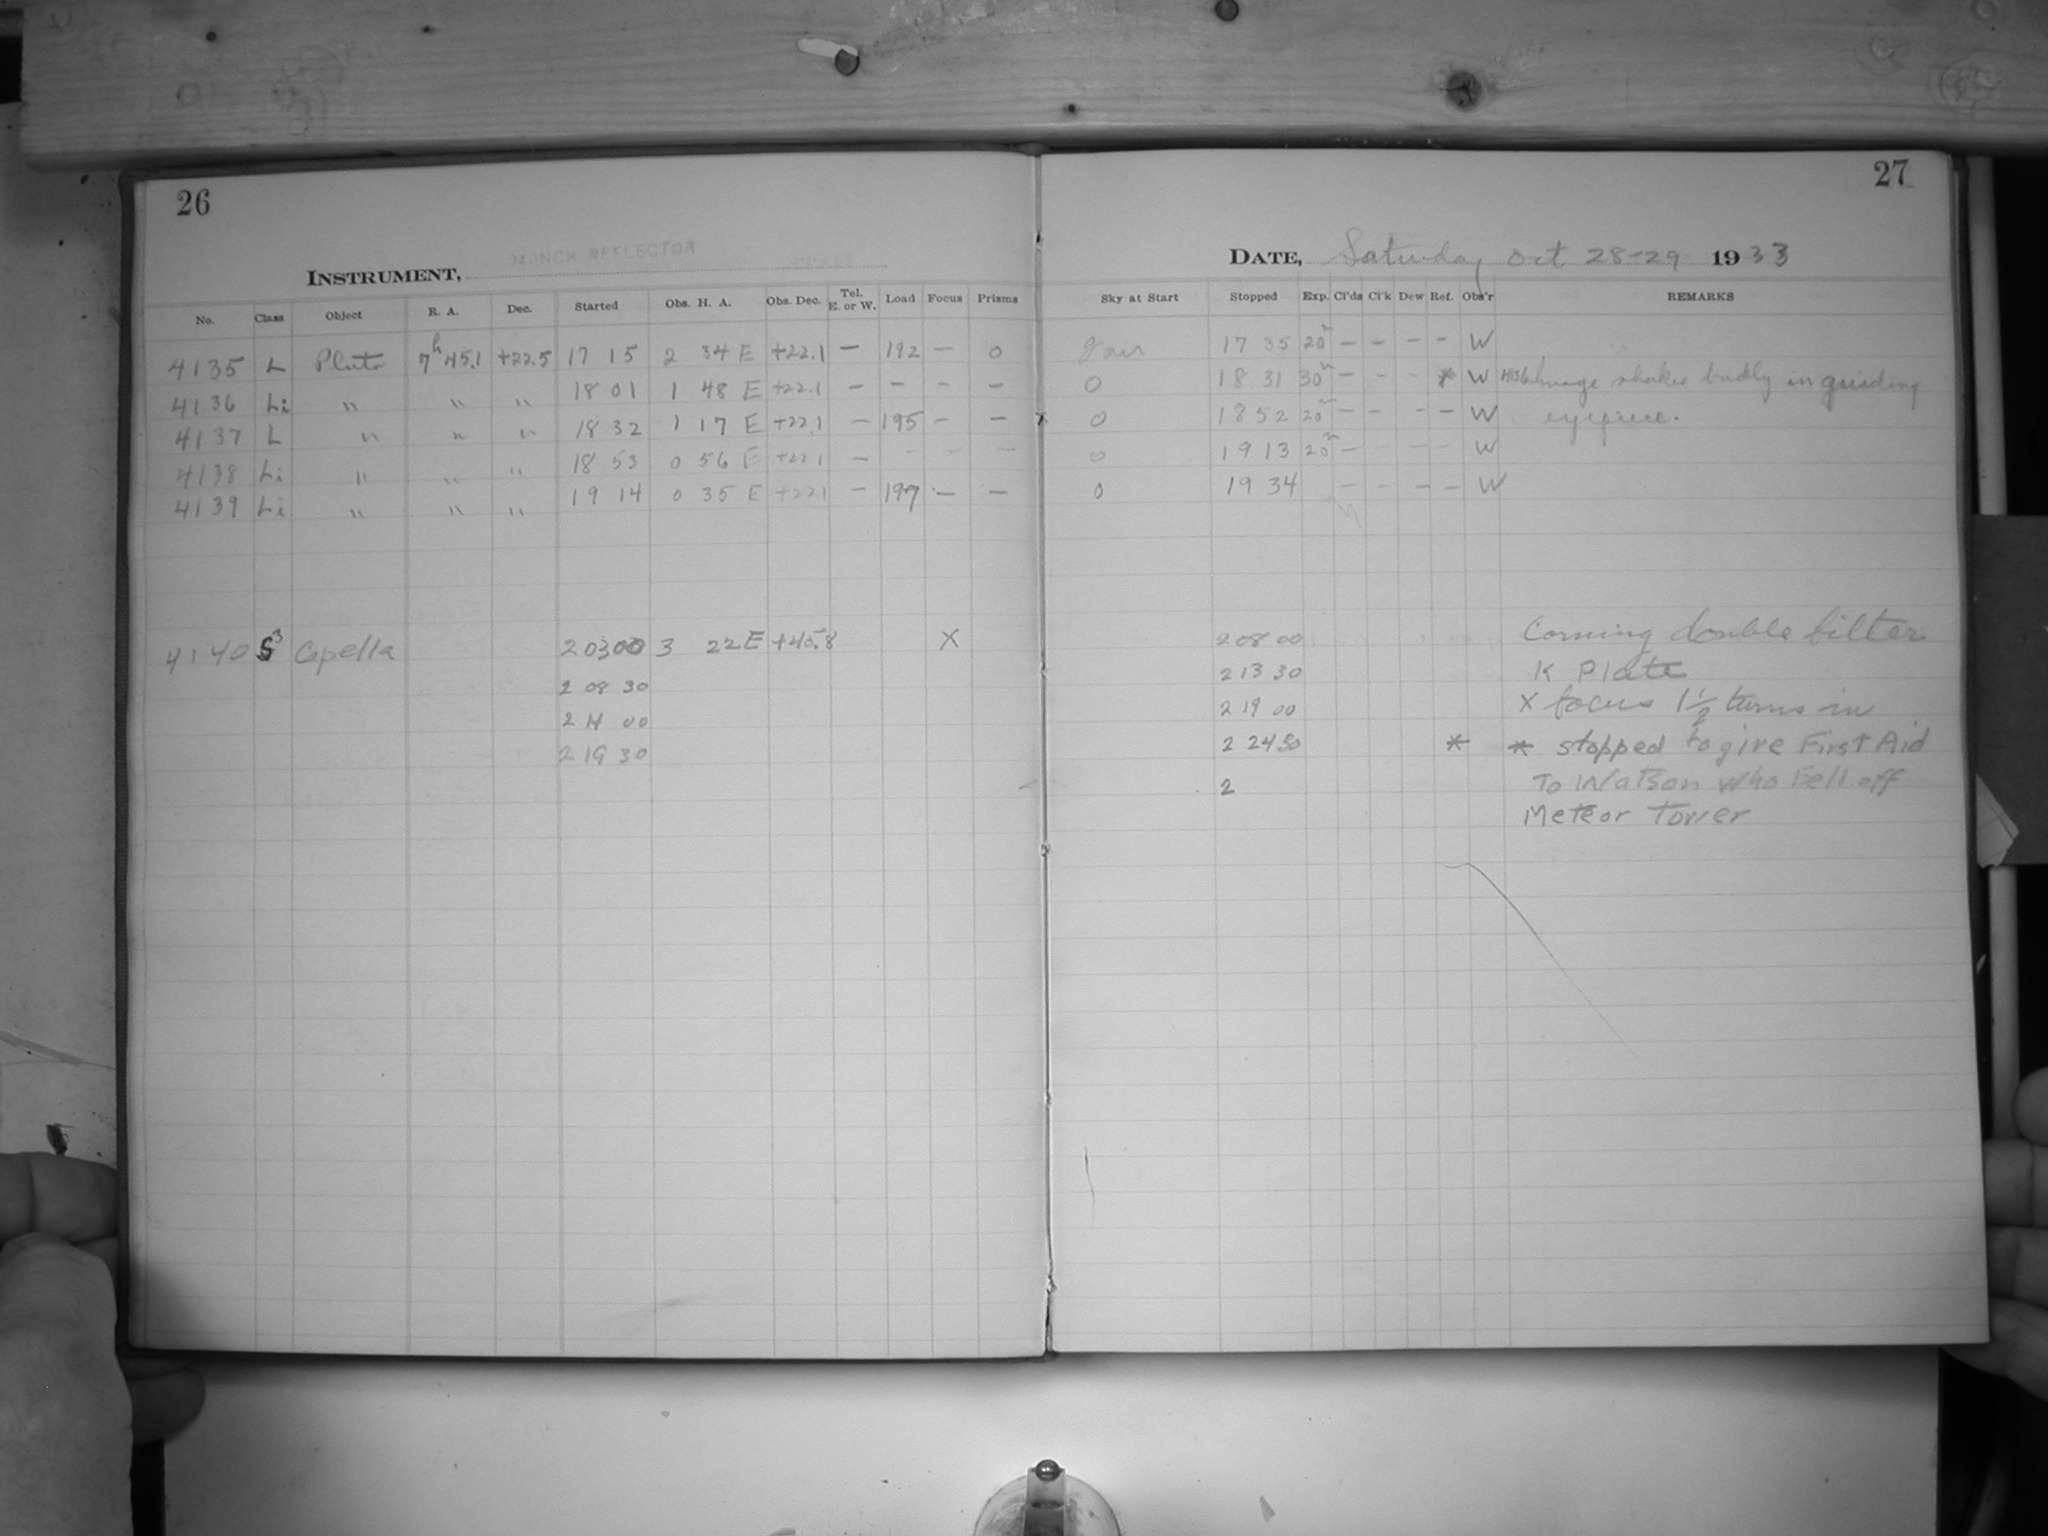 26
INSTRUMENT, 24-INCH REFLECTOR
No. Class Object R. A. Dec. Started Obs. H. A. Obs. Dec. Tel. E. or W. Load Focus Prisms
4135 L Pluto 7h 45.1 +22.5 17 15 2 34 E +22.1 — 192 — 0
4136 Li " " " 18 01 1 48 E +22.1 — — — —
4137 L " " " 18 32 1 17 E +22.1 — 195 — —
4138 Li " " " 18 53 0 56 E +22.1 — - - —
4139 Li " " " 19 14 0 35 E +22.1 — 197 — —
4140 S3 Capella 2 03 00 3 22 E +45.8 X
2 08 30
2 14 00
2 19 30
27
DATE, Saturday Oct 28-29 1933
Sky at Start Stopped Exp. Cl'ds Cl'k Dew Ref. Obs'r REMARKS
Fair 17 35 20m — — — — W
0 18 31 30m — - - * W 4136 Image shakes badly in guiding
0 18 52 20m — — — — W eyepiece.
0 19 13 20m — — — — W
0 19 34 — — — — W
2 08 00 Corning double filter
2 13 30 K Plate
2 19 00 X focus 1 1/2 turns in
2 24 30 * * stopped to give First Aid
2 To Watson who Fell off
Meteor Tower